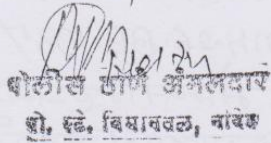 पोलीस ठाणे अंमलदार
पो. स्टे. विमानतळ, नांदेड